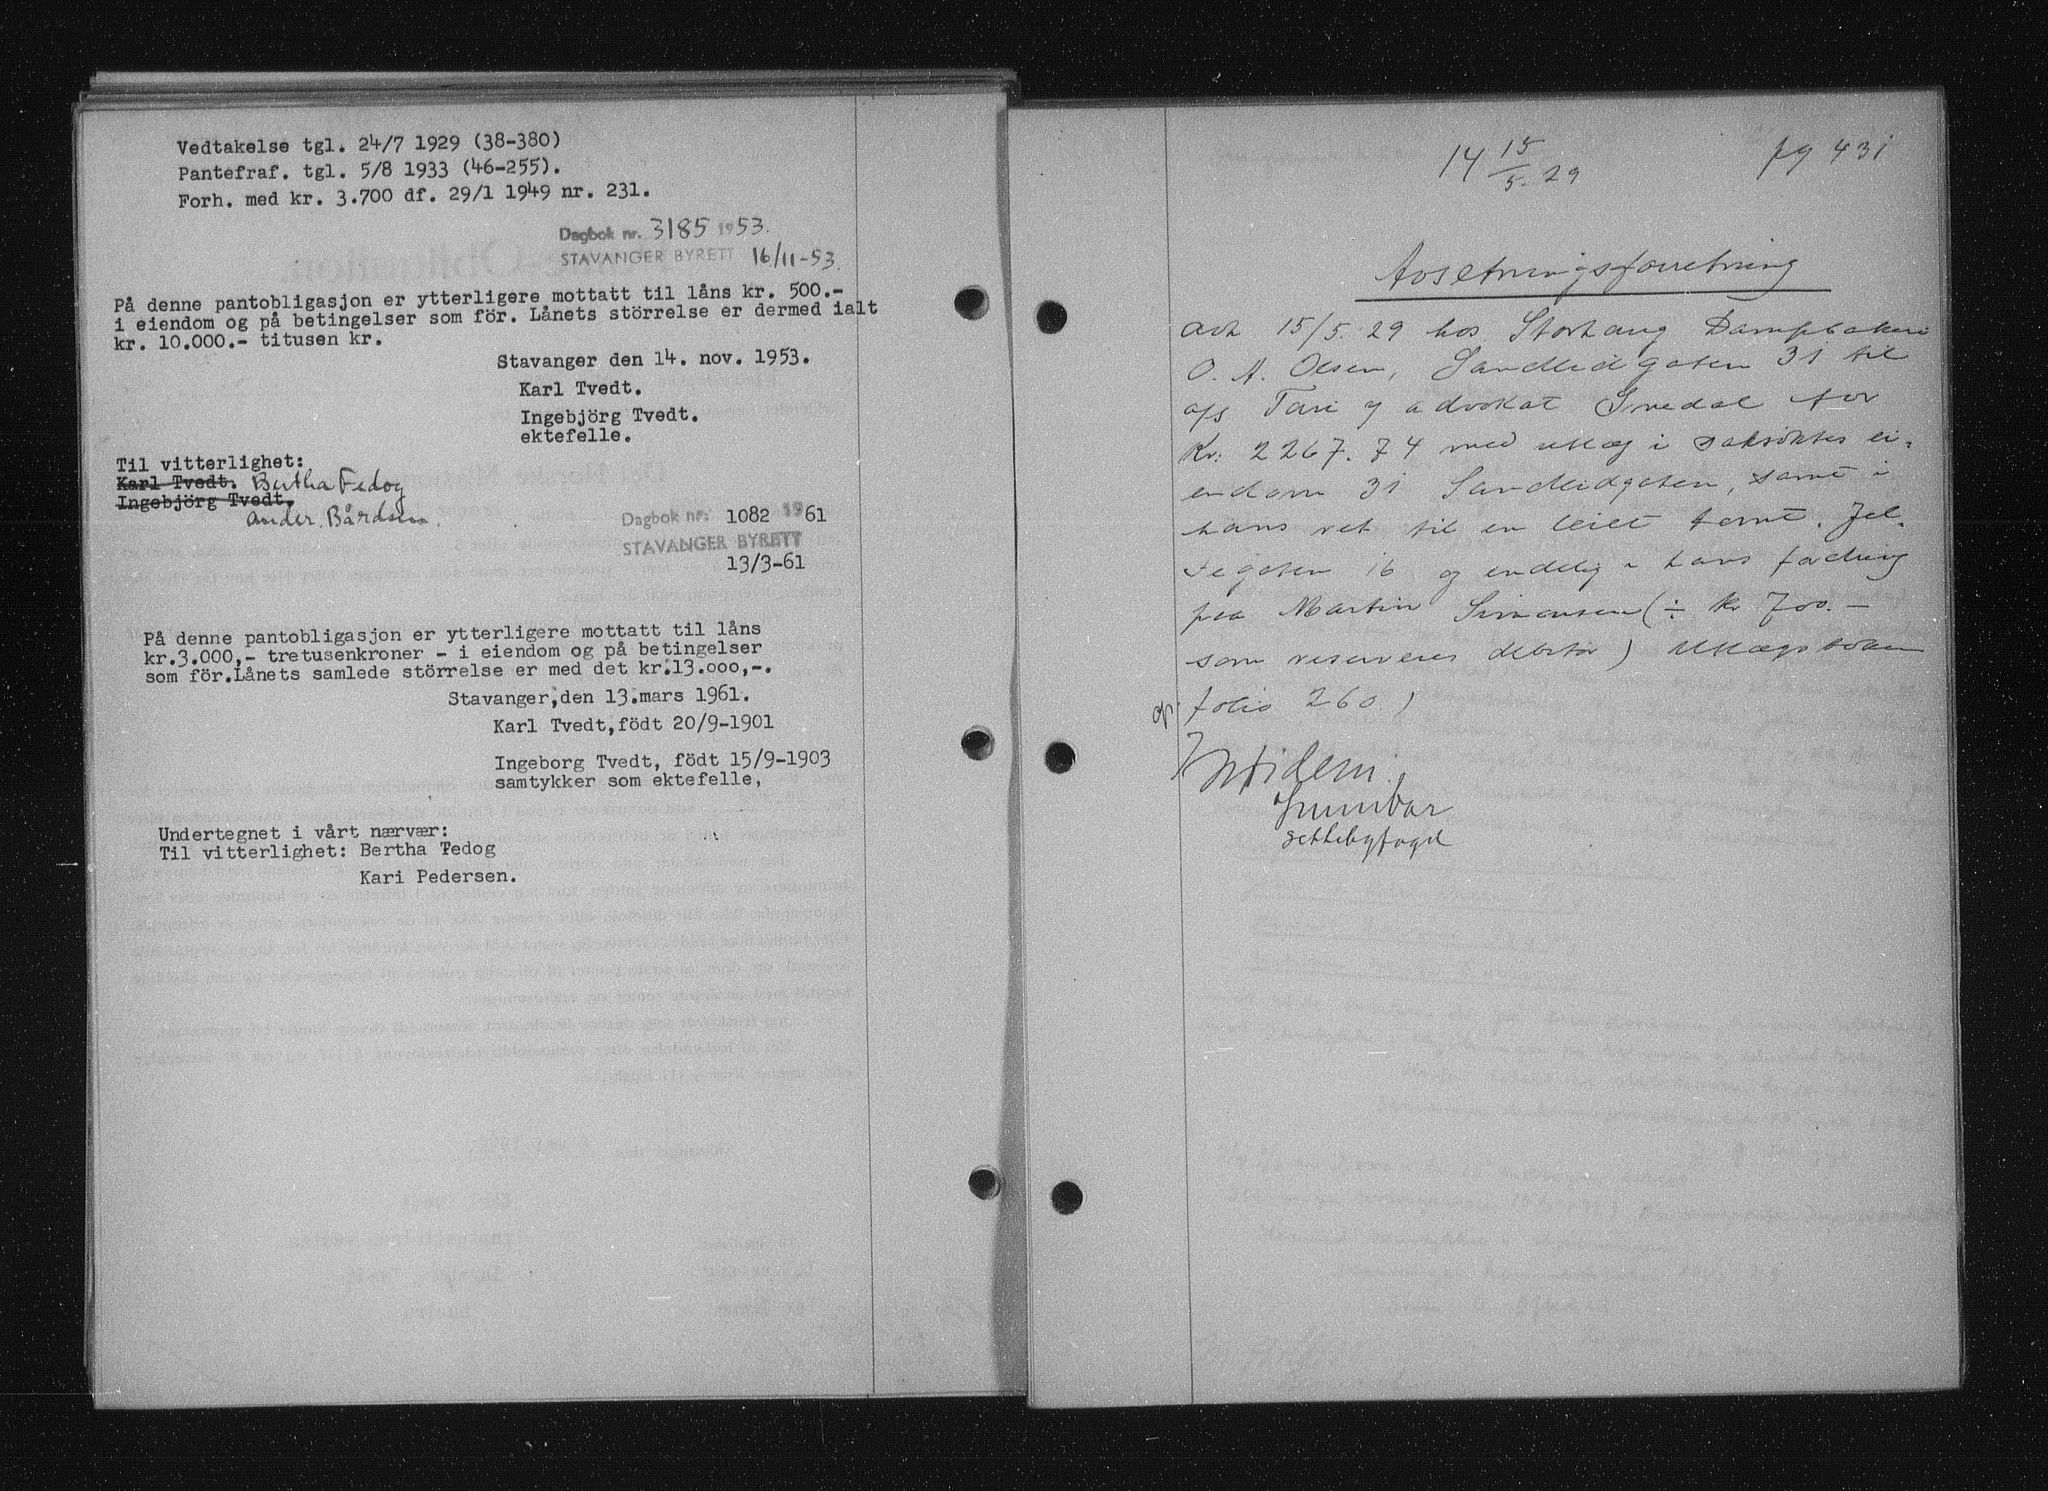 Vedtakelse tgl. 24/7 1929 (38-380)
Pantefraf. tgl. 5/8 1933 (46-255).
Forh. med kr. 3.700 df. 29/1 1949 nr. 231.
Dagbok nr. 3185 1953.
STAVANGER BYRETT 16/11-53.
På denne pantobligasjon er ytterligere mottatt til låns kr. 500.-
i eiendom og på betingelser som för. Lånets störrelse er dermed ialt
kr. 10.000.- titusen kr.
Stavanger den 14. nov. 1953.
Karl Tvedt.
Ingebjörg Tvedt.
ektefelle.
Til vitterlighet:
Karl Tvedt. Bertha Fedog
Ingebjörg Tvedt.
Ander. Bårdsen.
Dagbok nr. 1082 1961
STAVANGER BYRETT
13/3-61
På denne pantobligasjon er ytterligere mottatt til låns
kr.3.000,- tretusenkroner - i eiendom og på betingelser
som för.Lånets samlede störrelse er med det kr.13.000,-.
Stavanger,den 13.mars 1961.
Karl Tvedt,födt 20/9-1901
Ingeborg Tvedt, födt 15/9-1903
samtykker som ektefelle,
Undertegnet i vårt nærvær:
Til vitterlighet: Bertha Tedog
Kari Pedersen.
14 15/5-29
pg 431
Avsetningsforretning
avh 15/5.29 hos Storhaug Dampbakeri
O. A. Olsen, Sandlidgaten 31 til
a/s Tari og advokat Smedal for
Kr: 2267.74 med utlæg i saksöktes ei-
endom 31 Sandlidgaten, samt i
hans ret til en leiet tomt. Jel-
segaten 16 og endelig i hans fordring
paa Martin Simonsen (÷ kr 700.-
som reserveres debitor) Utlægsboken
folio 260)
Gunvar
settebyfogd